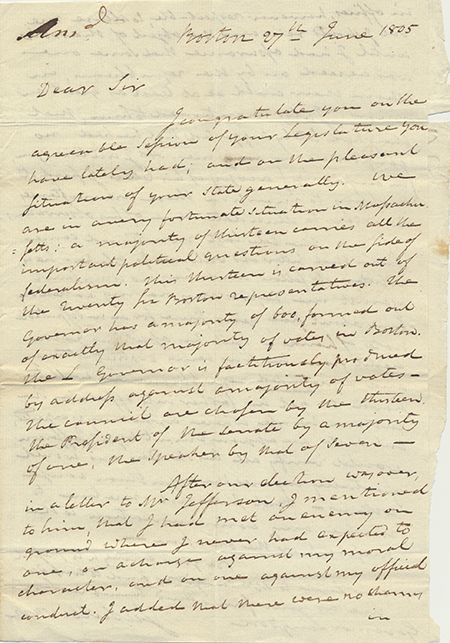 Ansd
Boston 27th June 1805
Dear Sir
I congratulate you on the
agreeable Session of your Legislature you
have lately had; and on the pleasant
situation of your State generally. We
are in a very fortunate situation in Massachu
=setts: a majority of thirteen carries all the
important political questions on the side of
federalism. This thirteen is carved out of
the Twenty six Boston representatives. The
Governor has a majority of 600, formed out
of exactly that majority of votes in Boston.
The L Governor is factitiously produced
by address against a majority of votes —
The council are chosen by the thirteen,
the President of the Senate by a majority
of one, the Speaker by that of Seven —
After our election was over,
in a letter to Mr Jefferson, I mentioned
to him, that I had met an enemy on
ground where I never had expected to
one, on a charge against my moral
character, and on one against my official
conduct. I added that there were no charms
in